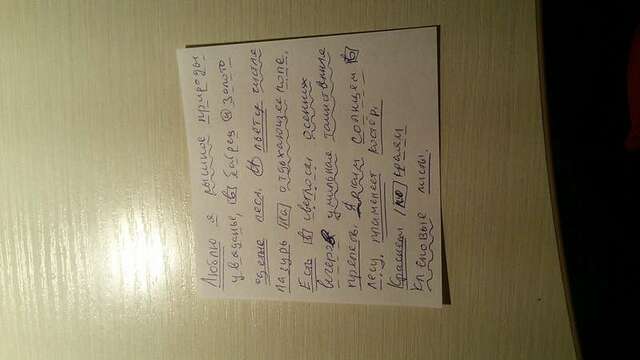 Люблю я пышное природы
увяданье, в багрец и золото
одетые леса. И льётся чистая
лазурь на отдыхающее поле.
Есть в светлости осенних
вечеров умильная таинственная
прелесть. Ярким солнцем в
лесу пламенеет костёр.
Краснеют по краям
кленовые листы.